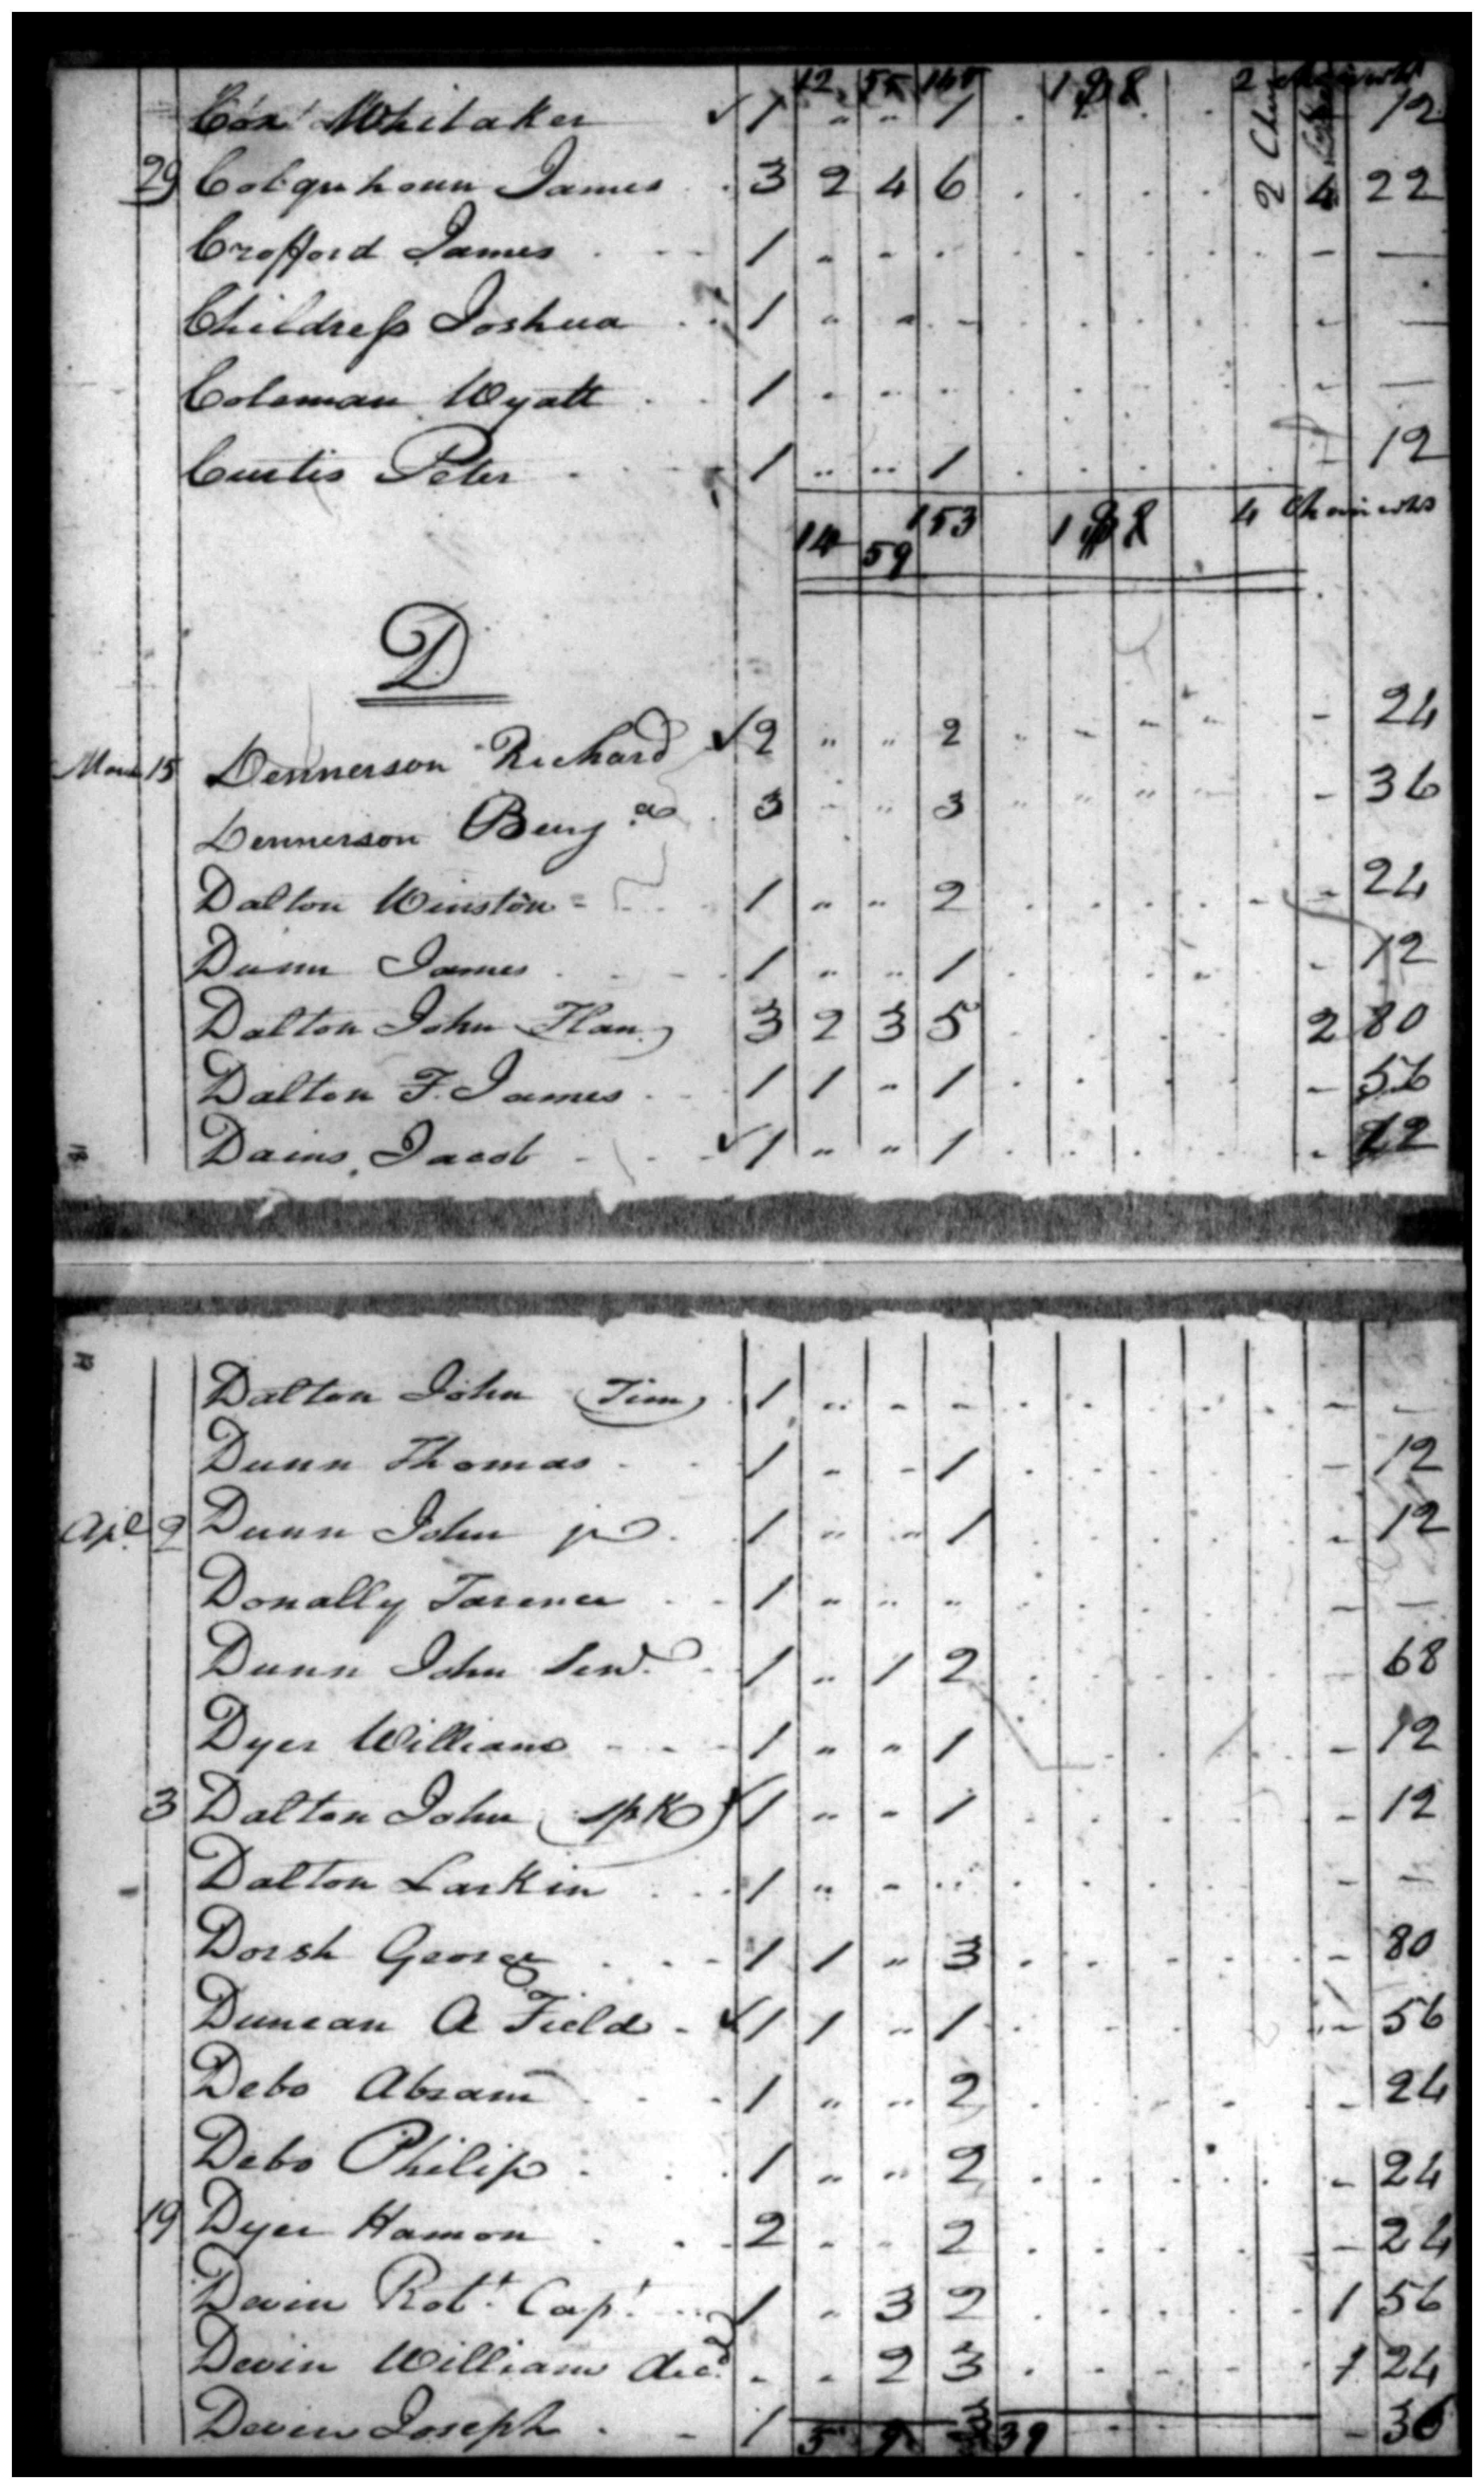 12 55 145 198 2
Cox Whitaker 1 " " 1 12
29 Colquhoun James 3 2 4 6 2 Chair 4 22
Crofford James 1 - - - —
Childress Joshua 1 " - - - —
Coleman Wyatt 1 - - - —
Curtis Peter 1 " " 1 - 12
14 59 153 4
D
15 Dennerson Richard 2 " " 2 - 24
Dennerson Benj.a 3 - " 3 - 36
Dalton Winston 1 " " 2 - 24
Dunn James 1 " " 1 - 12
Dalton John Flan 3 2 3 5 2 80
Dalton F. James 1 1 - 1 - 56
Jacob 1 " " 1 12
Dalton John (Tim) 1 " - - - -
Dunn Thomas 1 - - 1 - 12
Apl 2 Dunn John jr 1 " " 1 - 12
Donally Tarence 1 " " " - -
Dunn John Senr. 1 " 1 2 - 68
Dyer William 1 " " 1 - 12
3 Dalton John 1 " - 1 - 12
Dalton Larkin 1 " - " - -
Dorsh George 1 1 " 3 - 80
Duncan A Field 1 1 " 1 - 56
Debo Abram 1 " " 2 - 24
Debo Philip 1 " " 2 - 24
19 Dyer Hamon 2 - - 2 - 24
Devin Robt. Capt. 1 " 3 2 1 56
Devin William decd. - - 2 3 1 24
Devin Joseph 1 3 - 36
5 9 39